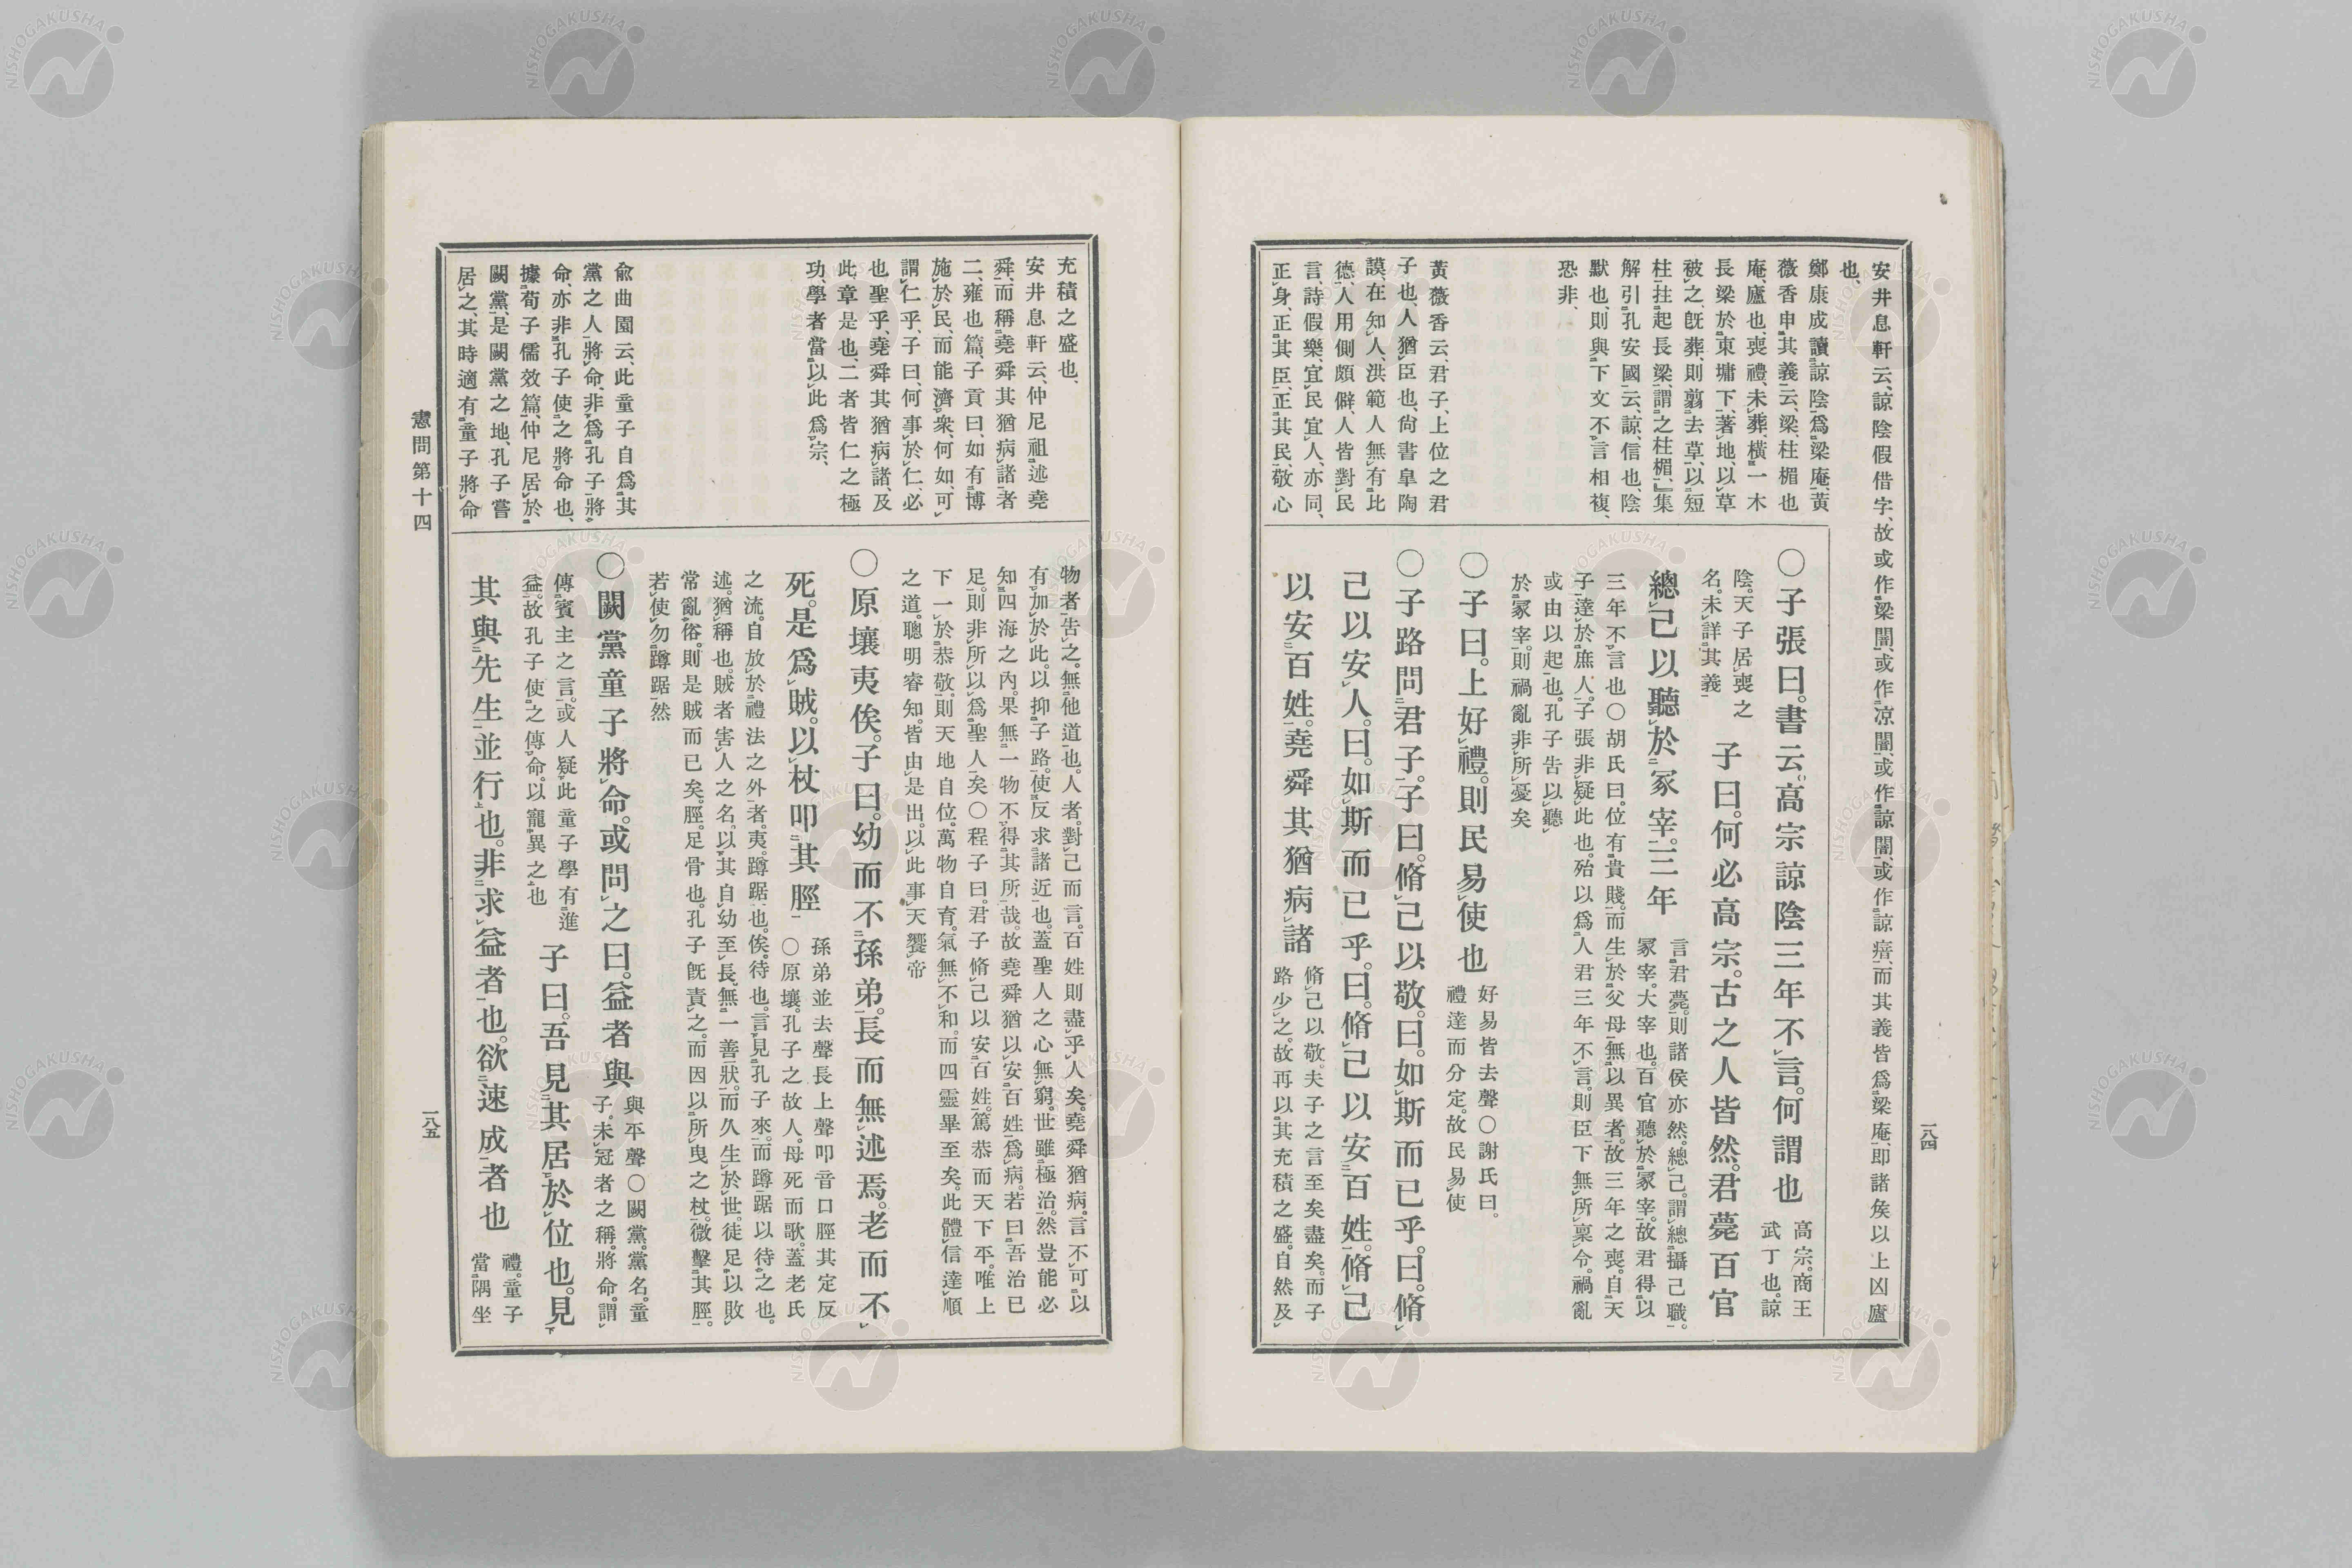 安井息軒云、諒陰假借字、故或作梁闇、或作凉闇、或作諒闇、或作諒瘖、而其義皆爲梁庵、即諸矦以上凶廬
也、
鄭康成讀諒陰爲梁庵、黃
薇香申其義云、梁、柱楣也
庵、廬也、喪禮、未葬、橫一木
長梁於東墉下、著地、以草
被之、旣葬、則翦去草、以短
柱拄起長梁、謂之柱楣、集
解引孔安國云、諒、信也、陰
默也、則與下文不言相複、
恐非、
黃薇香云、君子、上位之君
子也、人猶臣也、尙書皐陶
謨、在知人、洪範人無有比
德、人用側頗僻、人皆對民
言、詩假樂、宜民宜人、亦同、
正身、正其臣、正其民、敬心
〇子張曰。書云。高宗諒陰三年不言。何謂也
高宗。商王
武丁也。諒
陰。天子居喪之
名。未詳其義
子曰。何必高宗。古之人皆然。君薨百官
總己以聽於冢宰三年
言君薨。則諸侯亦然。總己。謂總攝己職。
冢宰。大宰也。百官聽於冢宰。故君得以
三年不言也〇胡氏曰。位有貴賤。而生於父母。無以異者。故三年之喪。自天
子達於庶人。子張非疑此也。殆以爲人君三年不言。則臣下無所稟令。禍亂
或由以起也。孔子告以聽
於冢宰。則禍亂非所憂矣
〇子曰。上好禮。則民易使也
好易皆去聲〇謝氏曰。
禮達而分定。故民易使
〇子路問君子。子曰。脩己以敬。曰。如斯而已乎。曰。脩
己以安人。曰。如斯而已乎。曰。脩己以安百姓。脩己
以安百姓。堯舜其猶病諸
脩己以敬。夫子之言至矣盡矣。而子
路少之。故再以其充積之盛。自然及
一八四
充積之盛也、
安井息軒云、仲尼祖述堯
舜、而稱堯舜其猶病諸者
二、雍也篇、子貢曰、如有博
施於民、而能濟衆、何如、可
謂仁乎、子曰、何事於仁、必
也聖乎、堯舜其猶病諸、及
此章是也、二者皆仁之極
功、學者當以此爲宗、
兪曲園云、此童子自爲其
黨之人將命、非爲孔子將
命、亦非孔子使之將命也、
據荀子儒效篇、仲尼居於
闕黨、是闕黨之地、孔子嘗
居之、其時適有童子將命
物者告之。無他道也。人者。對己而言。百姓則盡乎人矣。堯舜猶病。言不可以
有加於此。以抑子路。使反求諸近也。蓋聖人之心無窮。世雖極治。然豈能必
知四海之內。果無一物不得其所哉。故堯舜猶以安百姓爲病。若曰吾治已
足。則非所以爲聖人矣〇程子曰。君子脩己以安百姓。篤恭而天下平。唯上
下一於恭敬。則天地自位。萬物自育。氣無不和。而四靈畢至矣。此體信達順
之道。聰明睿知。皆由是出。以此事天饗帝
〇原壤夷俟。子曰。幼而不孫弟。長而無述焉。老而不
死。是爲賊。以杖叩其脛
孫弟並去聲長上聲叩音口脛其定反
〇原壤。孔子之故人。母死而歌。蓋老氏
之流。自放於禮法之外者。夷。蹲踞也。俟。待也。言見孔子來。而蹲踞以待之也。
述。猶稱也。賊者害人之名。以其自幼至長。無一善狀。而久生於世。徒足以敗
常亂俗。則是賊而已矣。脛。足骨也。孔子旣責之。而因以所曳之杖。微擊其脛。
若使勿蹲踞然
〇闕黨童子將命。或問之曰。益者與
與平聲〇闕黨。黨名。童
子。未冠者之稱。將命。謂
傳賓主之言。或人疑此童子學有進
益。故孔子使之傳命。以寵異之也
子曰。吾見其居於位也。見
其與先生並行也。非求益者也。欲速成者也
禮。童子
當隅坐
憲問第十四
一八五